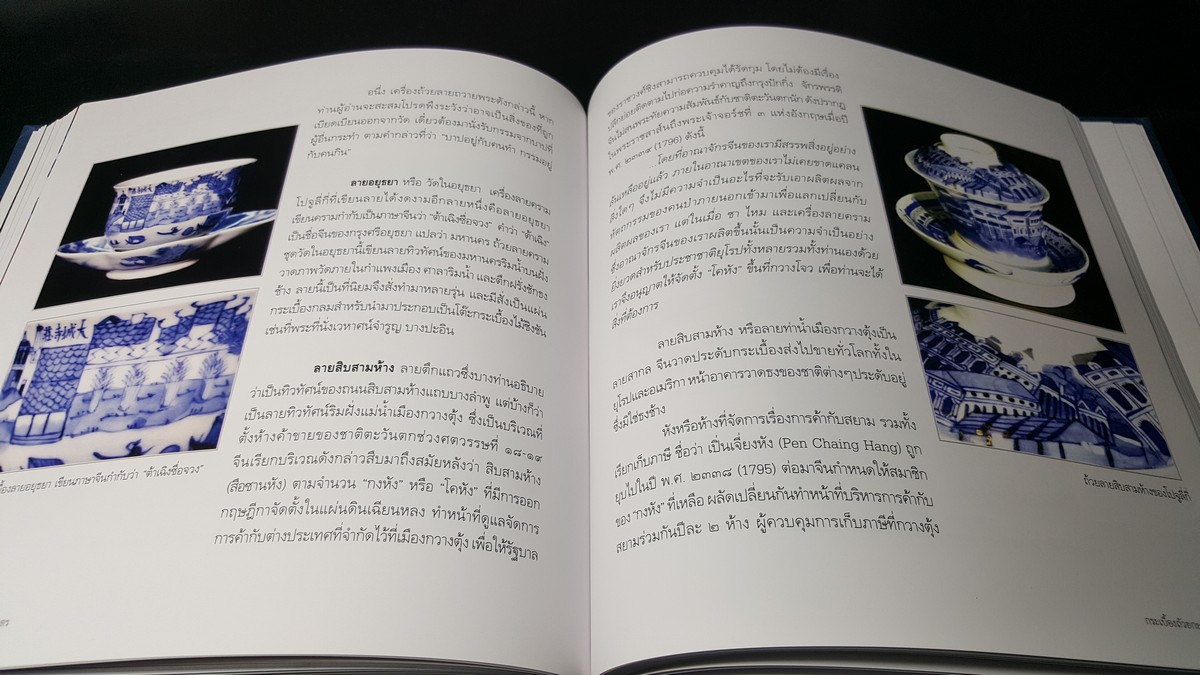 อนึ่ง เครื่องถ้วยลายถวายพระดังกล่าวนี้ หาก
ท่านผู้อ่านจะสะสมโปรดพึงระวังว่าอาจเป็นสิ่งของที่ถูก
เบียดเบียนออกจากวัด เดี๋ยวต้องมานั่งรับกรรมจากบาปที่
ผู้อื่นกระทำ ตามคำกล่าวที่ว่า “บาปอยู่กับคนทำ กรรมอยู่
กับคนกิน”
ลายอยุธยา หรือ วัดในอยุธยา เครื่องลายคราม
โปจูลีกี่ที่เขียนลายได้งดงามอีกลายหนึ่งคือลายอยุธยา
เขียนครามกำกับเป็นภาษาจีนว่า “ต้าเฉิงซื่อจวง” คำว่า “ต้าเฉิง”
เป็นชื่อจีนของกรุงศรีอยุธยา แปลว่า มหานคร ถ้วยลายคราม
ชุดวัดในอยุธยานี้เขียนลายทิวทัศน์ของมหานครริมน้ำบนฝั่ง
วาดภาพวัดภายในกำแพงเมือง ศาลาริมน้ำ และตึกฝรั่งชักธง
ช้าง ลายนี้เป็นที่นิยมจึงสั่งทำมาหลายรุ่น และมีสั่งเป็นแผ่น
กระเบื้องกลมสำหรับนำมาประกอบเป็นโต๊ะกระเบื้องไม้ชิงชัน
เช่นที่พระที่นั่งเวหาศน์จำรูญ บางปะอิน
ลายสิบสามห้าง ลายตึกแถวซึ่งบางท่านอธิบาย
ว่าเป็นทิวทัศน์ของถนนสิบสามห้างแถบบางลำพู แต่บ้างก็ว่า
เป็นลายทิวทัศน์ริมฝั่งแม่น้ำเมืองกวางตุ้ง ซึ่งเป็นบริเวณที่
ตั้งห้างค้าขายของชาติตะวันตกช่วงศตวรรษที่ ๑๘-๑๙
จีนเรียกบริเวณดังกล่าวสืบมาถึงสมัยหลังว่า สิบสามห้าง
(สือซานหัง) ตามจำนวน “กงหัง” หรือ “โคหัง” ที่มีการออก
กฤษฎีกาจัดตั้งในแผ่นดินเฉียนหลง ทำหน้าที่ดูแลจัดการ
การค้ากับต่างประเทศที่จำกัดไว้ที่เมืองกวางตุ้ง เพื่อให้รัฐบาล
大城寺莊
ลายอยุธยา เขียนภาษาจีนกำกับว่า “ต้าเฉิงซื่อจวง”
ของราชวงศ์ชิงสามารถควบคุมได้รัดกุม โดยไม่ต้องมีเรื่อง
ปลีกย่อยติดตามไปก่อความรำคาญถึงกรุงปักกิ่ง จักรพรรดิ
จีนไม่สนพระทัยความสัมพันธ์กับชาติตะวันตกนัก ดังปรากฏ
ในพระราชสาส์นถึงพระเจ้าจอร์ซที่ ๓ แห่งอังกฤษเมื่อปี
พ.ศ. ๒๓๓๙ (1796) ดังนี้
...โดยที่อาณาจักรจีนของเรามีสรรพสิ่งอยู่อย่าง
ล้นเหลืออยู่แล้ว ภายในอาณาเขตของเราไม่เคยขาดแคลน
สิ่งใดๆ จึงไม่มีความจำเป็นอะไรที่จะรับเอาผลิตผลจาก
หัตถกรรมของคนป่าภายนอกเข้ามาเพื่อแลกเปลี่ยนกับ
ผลิตผลของเรา แต่ในเมื่อ ชา ไหม และเครื่องลายคราม
ซึ่งอาณาจักรจีนของเราผลิตขึ้นนั้นเป็นความจำเป็นอย่าง
ยิ่งยวดสำหรับประชาชาติยุโรปทั้งหลายรวมทั้งท่านเองด้วย
เราจึงอนุญาตให้จัดตั้ง “โคหัง” ขึ้นที่กวางโจว เพื่อท่านจะได้
สิ่งที่ต้องการ
ลายสิบสามห้าง หรือลายท่าน้ำเมืองกวางตุ้งเป็น
ลายสากล จีนวาดประดับกระเบื้องส่งไปขายทั่วโลกทั้งใน
ยุโรปและอเมริกา หน้าอาคารวาดธงของชาติต่างๆประดับอยู่
ซึ่งมิใช่ธงช้าง
หังหรือห้างที่จัดการเรื่องการค้ากับสยาม รวมทั้ง
เรียกเก็บภาษี ชื่อว่า เปิ่นเจี่ยงหัง (Pen Chaing Hang) ถูก
ยุบไปในปี พ.ศ. ๒๓๓๘ (1795) ต่อมาจีนกำหนดให้สมาชิก
ของ “กงหัง” ที่เหลือ ผลัดเปลี่ยนกันทำหน้าที่บริหารการค้ากับ
สยามร่วมกันปีละ ๒ ห้าง ผู้ควบคุมการเก็บภาษีที่กวางตุ้ง
ถ้วยลายสิบสามห้างของโปจูลีกี่